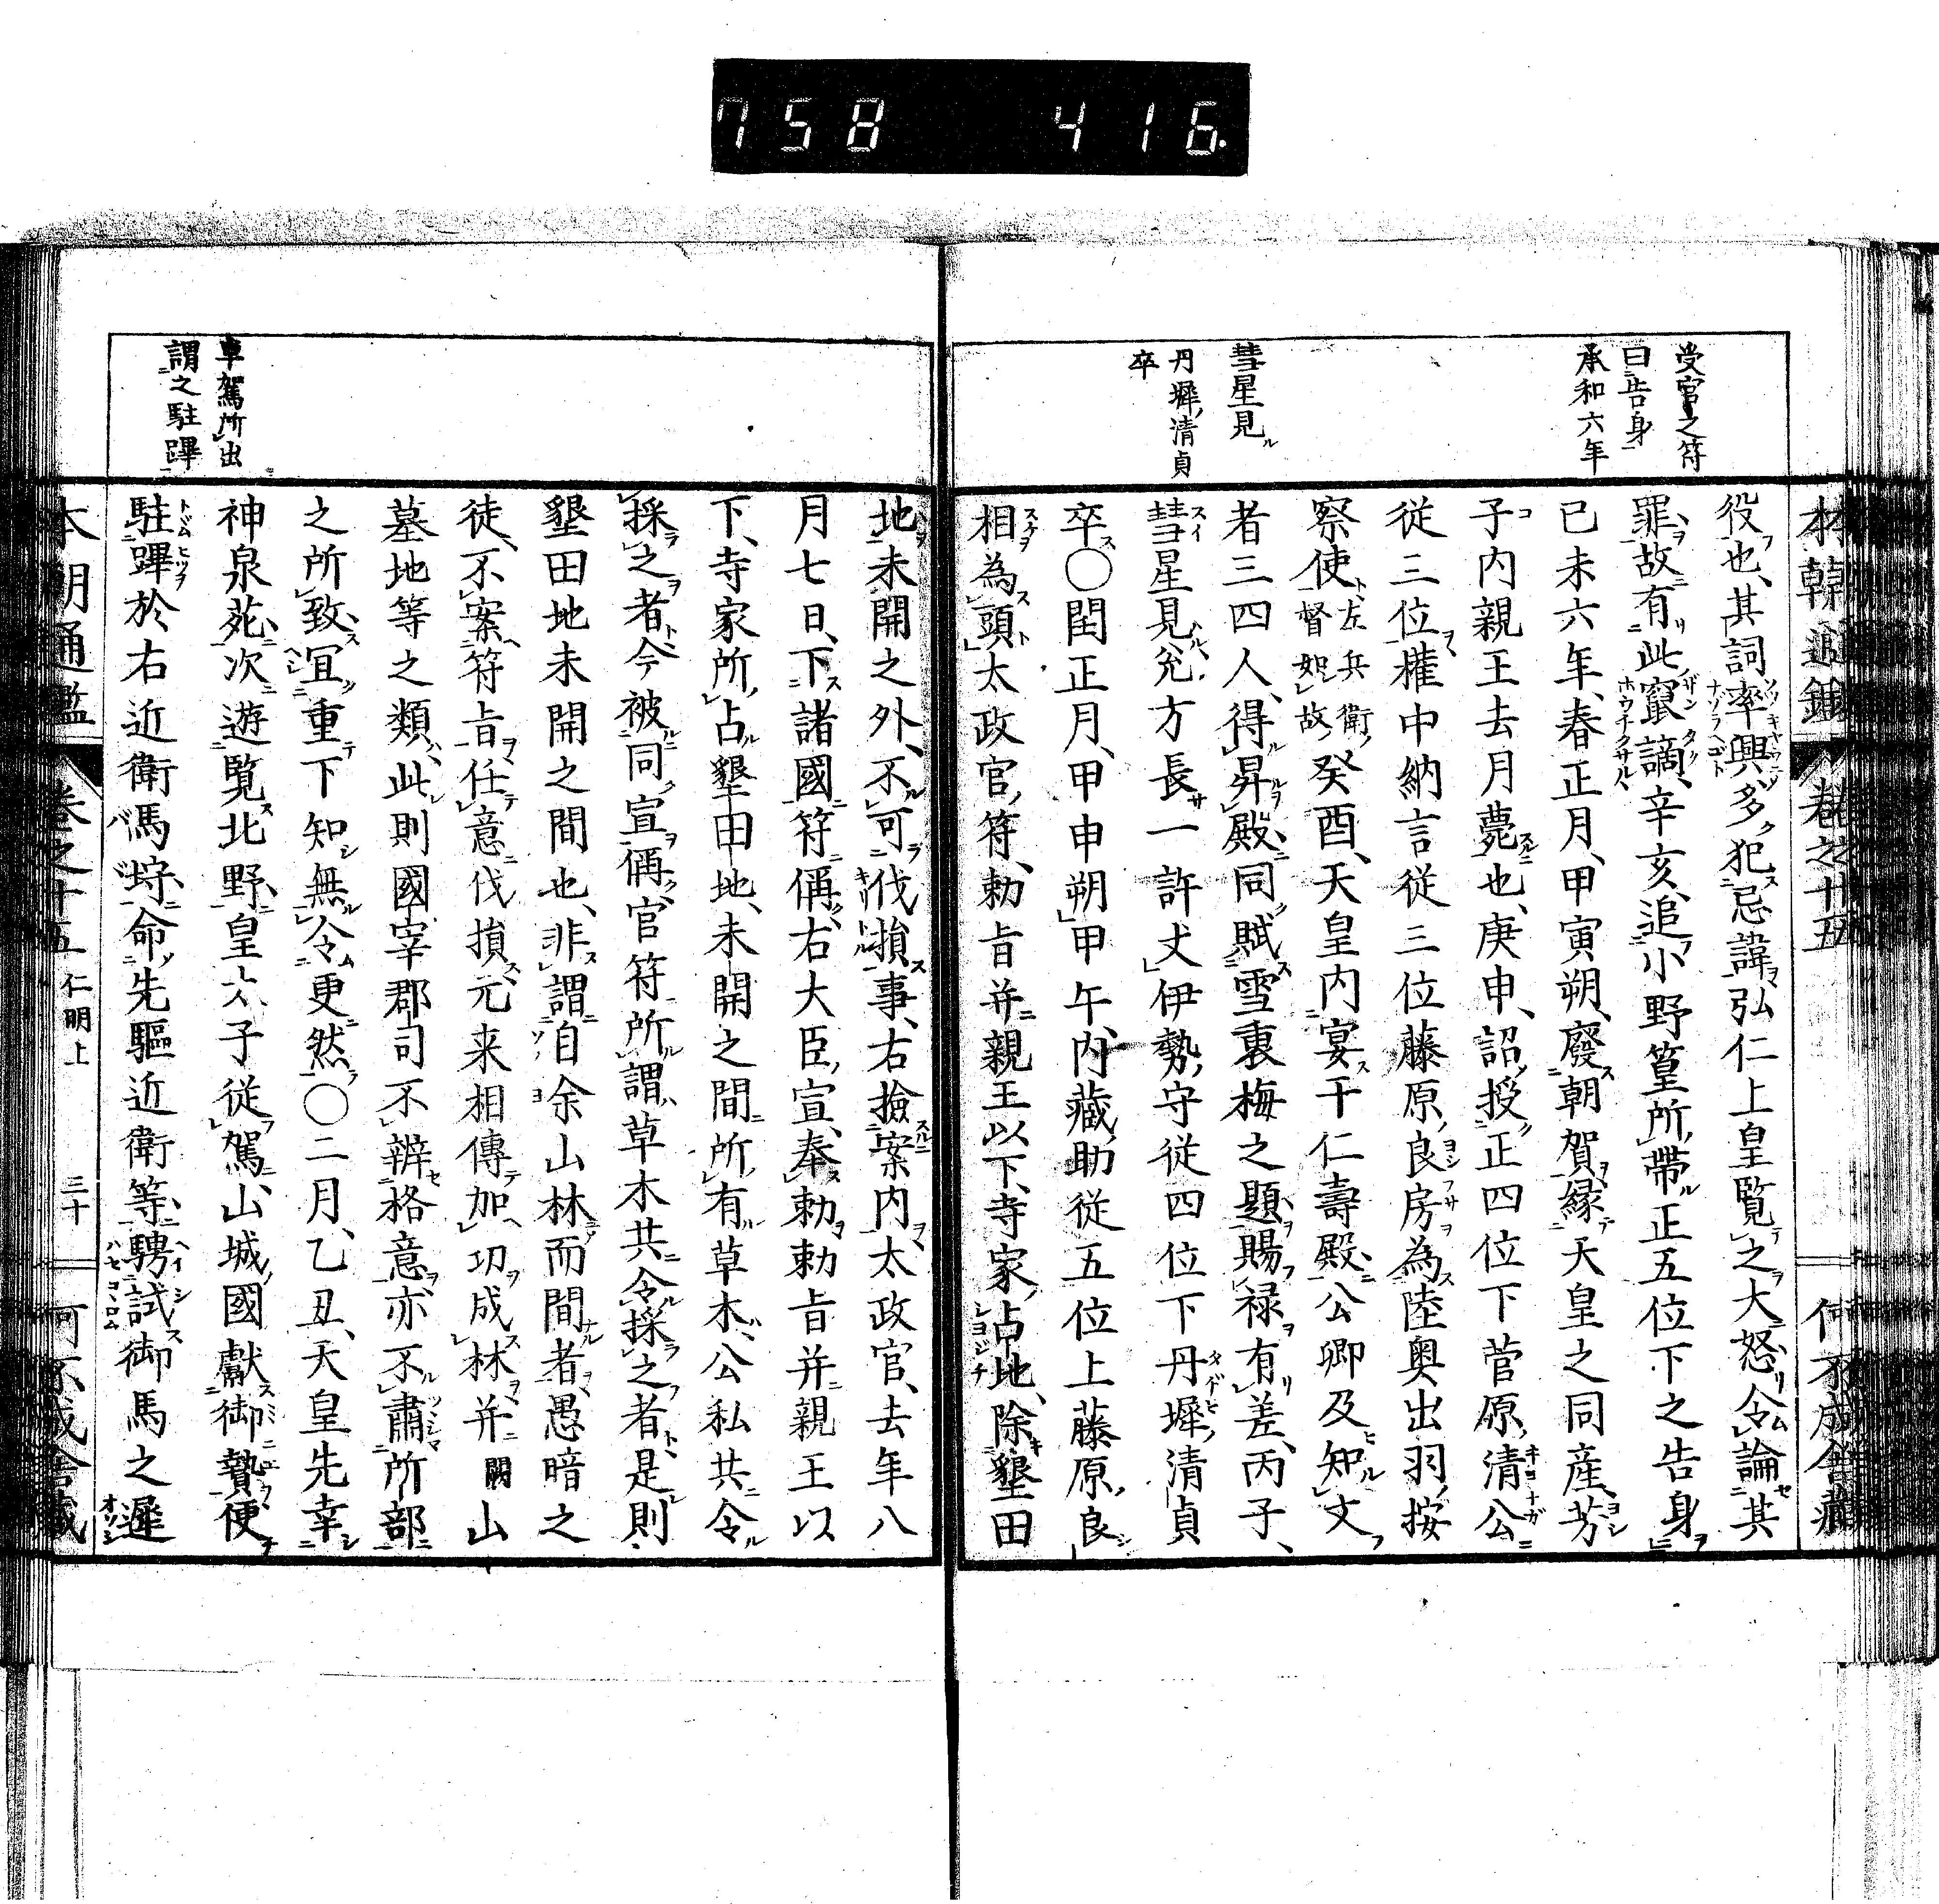 758 416.
受官之符
曰告身
承和六年
彗星見
丹墀清貞
卒
役也、其詞率興、多犯忌諱、弘仁上皇覧之大怒、令論其
罪、故有此竄謫、辛亥、追小野篁所帶正五位下之告身、
己未六年、春正月、甲寅朔、廢朝賀、緣天皇之同産芳
子内親王去月薨也、庚申、詔授正四位下菅原清公
從三位、權中納言從三位藤原良房為陸奥出羽按
察使左兵衛督如故、癸酉、天皇内宴于仁壽殿、公卿及知文
者三四人、得昇殿、同賦雪裏梅之題、賜禄有差、丙子、
彗星見兊方、長一許丈、伊勢守從四位下丹墀清貞
卒○閏正月、甲申朔、甲午、内藏助從五位上藤原良
相為頭、太政官符、勅旨并親王以下、寺家占地、除墾田
地未開之外、不可伐損事、右撿案内、太政官、去年八
月七日、下諸國符偁、右大臣宣、奉勅、勅旨并親王以
下、寺家所占墾田地、未開之間、所有草木、公私共令
採之者、今被同宣偁、官符所謂草木共令採之者、是則
墾田地未開之間也、非謂自余山林、而間者愚暗之
徒、不案符旨、任意伐損、元来相傳加功成林、并闢山
墓地等之類、此則國宰郡司不辨格意、亦不肅所部
之所致、宜重下知、無令更然、○二月、乙丑、天皇先幸
神泉苑、次遊覧北野、皇太子從駕、山城國獻御贄、便
駐蹕於右近衛馬埒、命先驅近衛等、騁試御馬之遲
車駕所出
謂之駐蹕
本朝通鑑 卷之十五 仁明上 三十